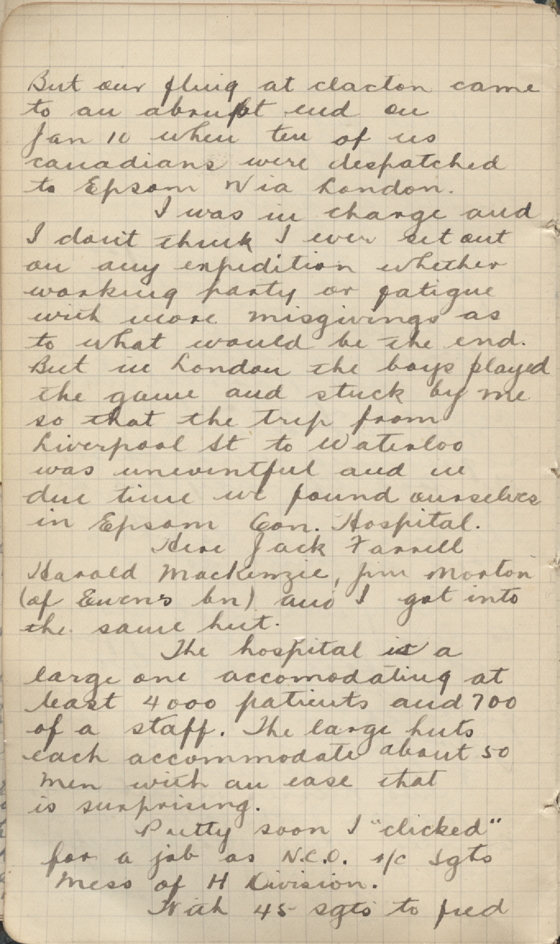 But our fling at clacton came
to an abrupt end on
Jan 10 when ten of us
canadians were despatched
to Epsom Via London.
I was in charge and
I dont think I ever set out
on any expedition whether
working party or fatigue
with more misgivings as
to what would be the end.
But in London the boys played
the game and stuck by me
so that the trip from
Liverpool St to Waterloo
was uneventful and in
due time we found ourselves
in Epsom Con. Hospital.
Here Jack Farrell
Harold Mackenzie, Jim Morton
(of Ewens bn) and I got into
the same hut.
The hospital is a
large one accomodating at
least 4000 patients and 700
of a staff. The large huts
each accommodate about 50
men with an ease that
is surprising.
Pretty soon I "clicked"
for a job as N.C.O. i/c Sgts
Mess of H Division.
With 45 sgts to feed